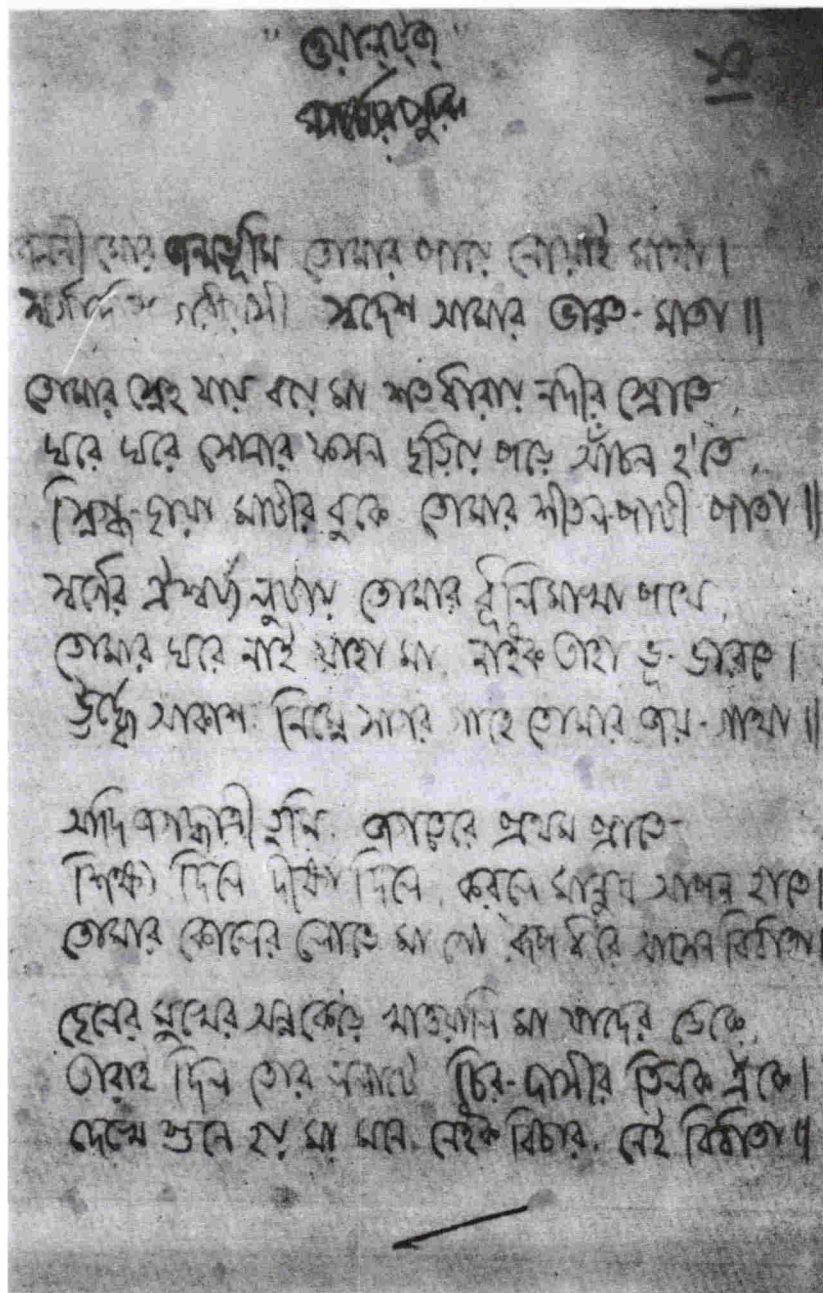 "ওয়াল্‌ট্‌জ্‌"
মার্চ্চের সুর
জননী মোর জন্মভূমি তোমার পায়ে নোয়াই মাথা।
স্বর্গাদপি গরীয়সী স্বদেশ আমার ভারত-মাতা॥
তোমার স্নেহ যায় বয়ে মা শত ধারায় নদীর স্রোতে,
ঘরে ঘরে সোনার ফসল ছড়িয়ে পড়ে আঁচল হ'তে,
স্নিগ্ধ-ছায়া মাটীর বুকে তোমার শীতল-পাটী পাতা॥
স্বর্গের ঐশ্বর্য্য লুটায় তোমার ধূলিমাখা পথে,
তোমার ঘরে নাই যাহা মা, নাইক তাহা ভূ-ভারতে।
ঊর্দ্ধে আকাশ নিম্নে সাগর গাহে তোমার জয়-গাথা॥
আদি জগদ্ধাত্রী তুমি জগতেরে প্রথম প্রাতে-
শিক্ষা দিলে দীক্ষা দিলে, করলে মানুষ আপন হাতে।
তোমার কোলের লোভে মা গো রূপ ধরে আসেন বিধাতা।
ছেলের মুখের অন্ন কেড়ে খাওয়ালি মা যাদের ডেকে,
তারাই দিল তোর ললাটে চির-দাসীর তিলক এঁকে।
দেখে শুনে হয় মা মনে, নেইক বিচার, নেই বিধাতা॥